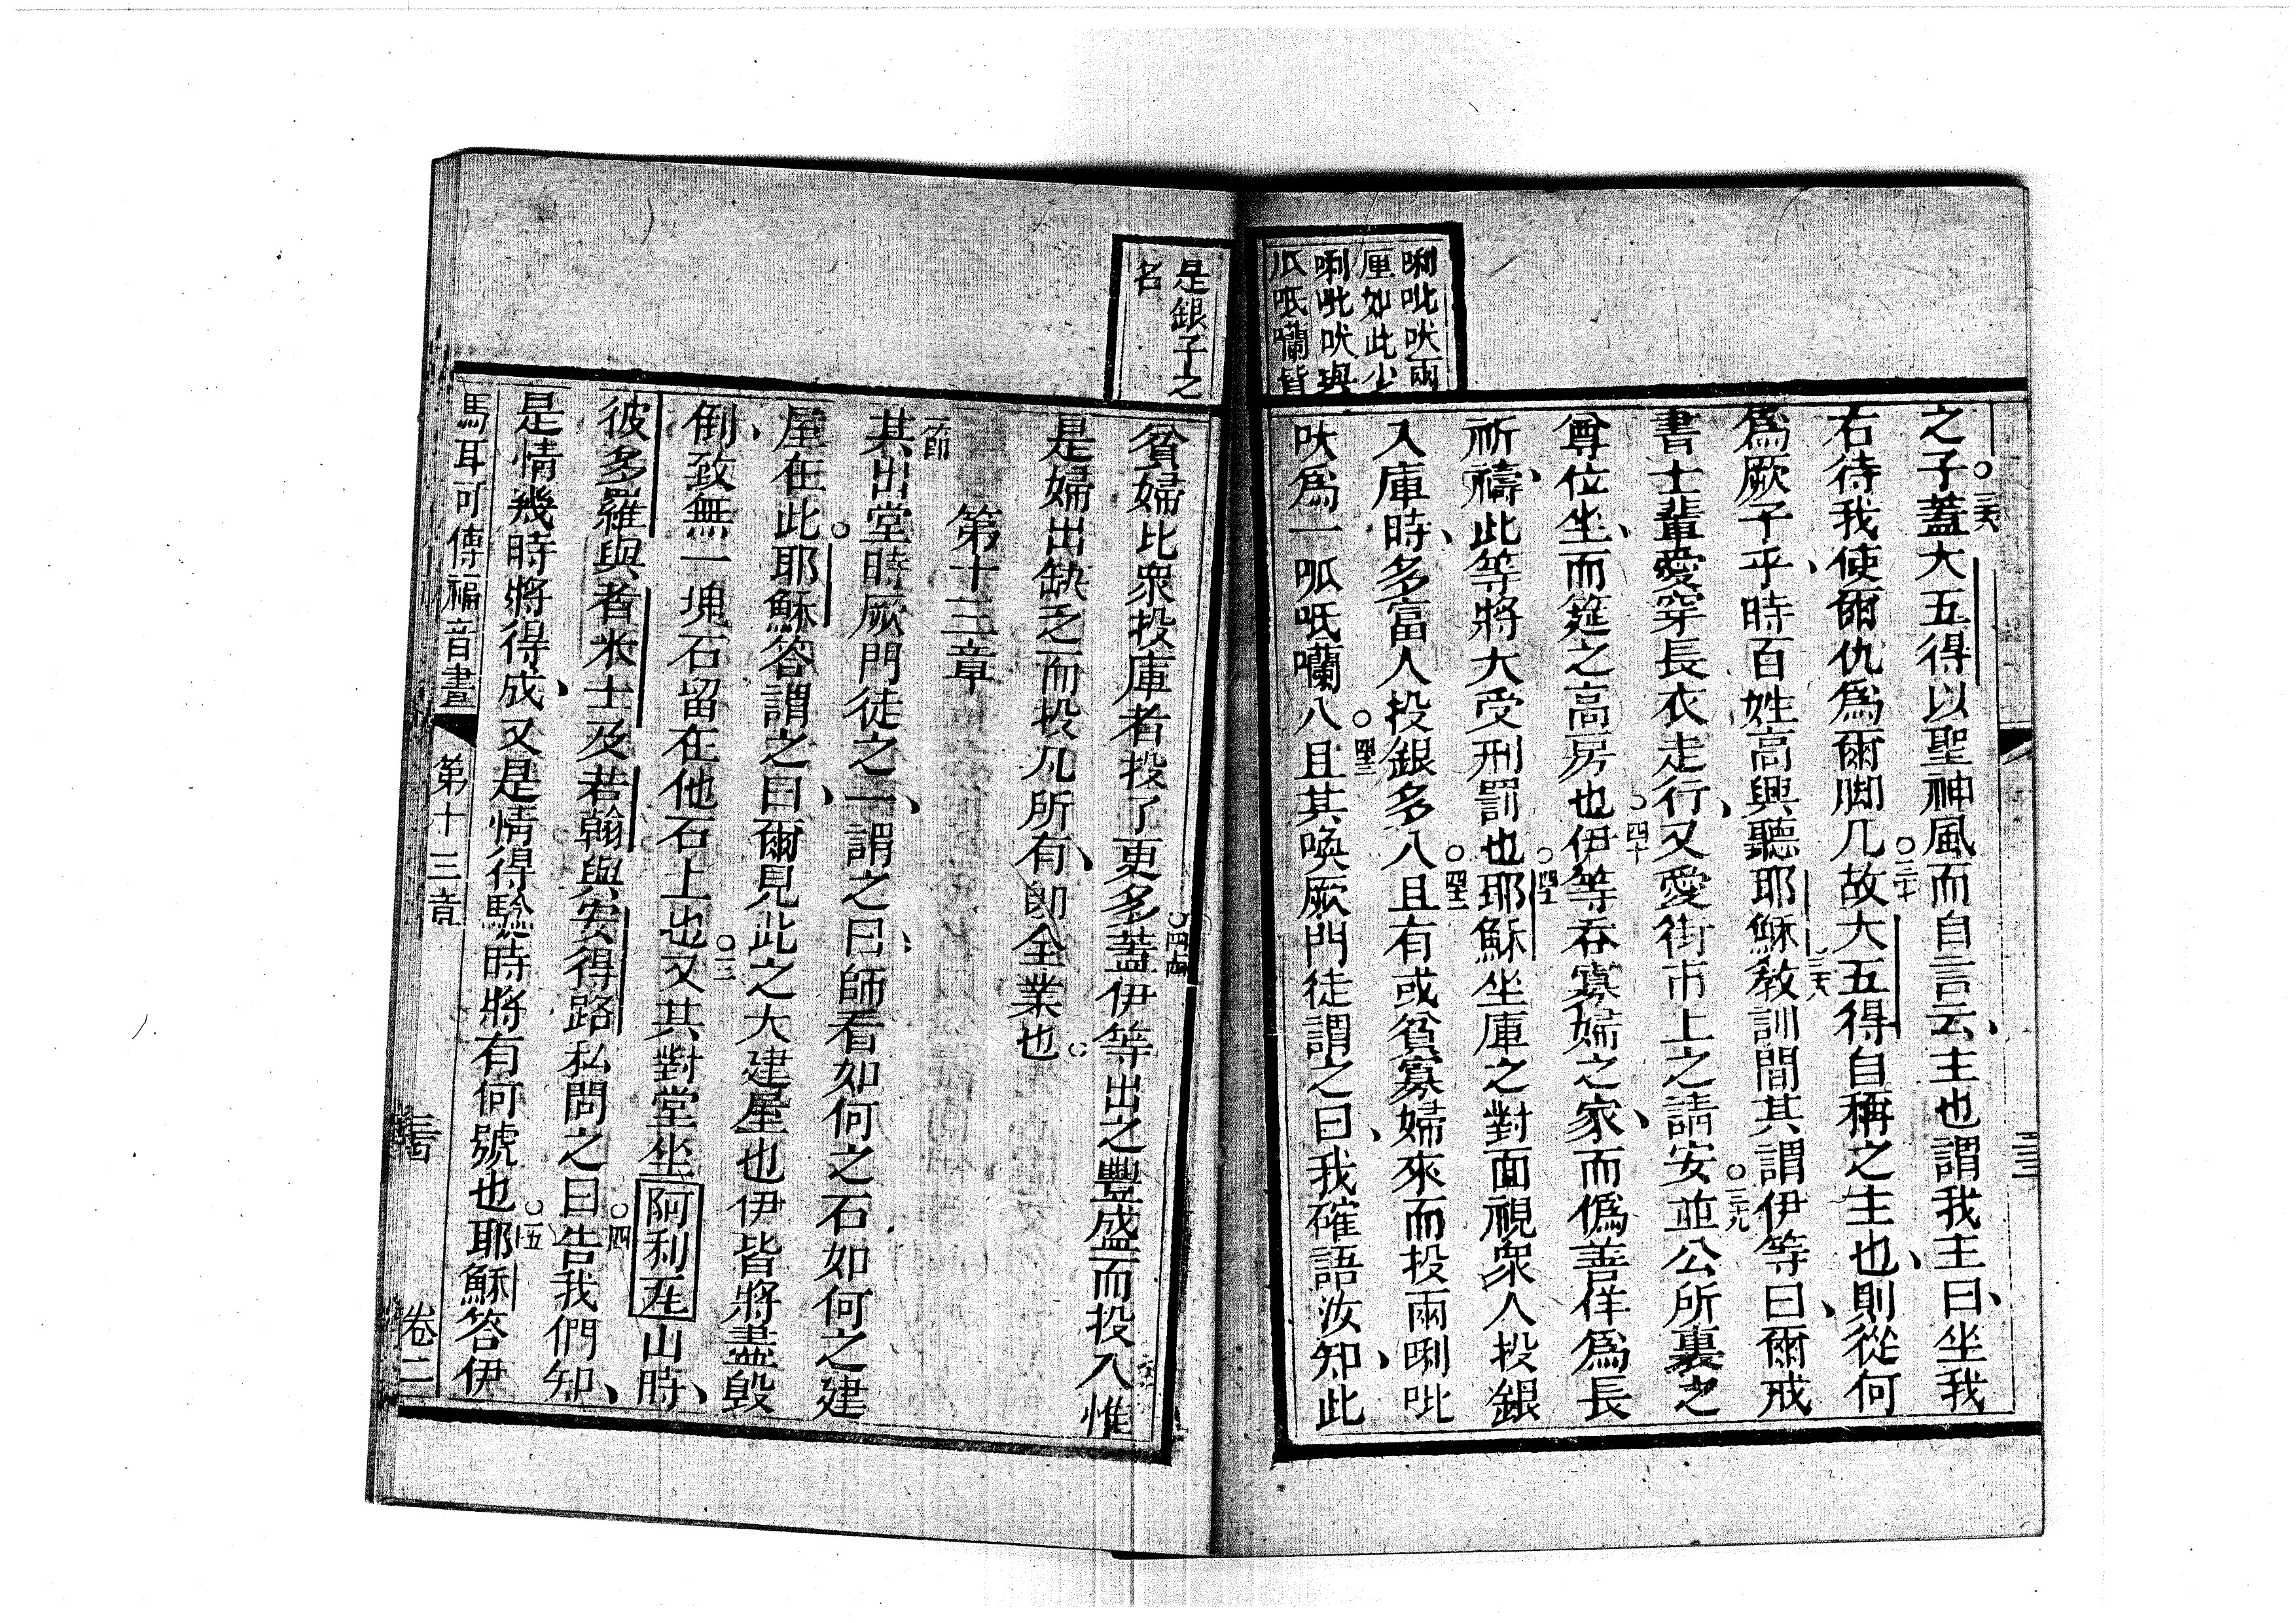 唎吡吠兩
厘如此少
唎吡吠與
呱呧囒皆
之子。三六蓋大五得以聖神風而自言云、主也謂我主曰、坐我
右待我使爾仇為爾脚几。三七故大五得自稱之主也、則從何
為厥子乎、時百姓高興聽耶穌三八教訓間其謂伊等曰、爾戒
書士輩愛穿長衣走行、又愛街市上之請安。三九並公所裏之
尊位坐、而筵之高房也。四十伊等吞寡婦之家、而僞善佯為長
祈禱、此等將大受刑罰也。四一耶穌坐庫之對面視衆人投銀
入庫時、多富人投銀多入。四二且有或貧寡婦來而投兩唎吡
吠為一呱呧囒入。四三且其喚厥門徒謂之曰、我確語汝知、此
是銀子之
名
貧婦比衆投庫者投了更多。四四蓋伊等出之豐盛而投入惟
是婦出缺乏而投凡所有、即全業也。
第十三章
節其出堂時厥門徒之一、謂之曰、師看如何之石如何之建
屋在此。二耶穌答謂之曰、爾見此之大建屋也伊皆將盡毀
倒、致無一塊石留在他石上也。三又其對堂坐阿利瓦山時、
彼多羅與者米士及若翰與安得路私問之曰。四告我們知、
是情幾時將得成、又是情得驗時將有何號也。五耶穌答伊
馬耳可傳福音書 第十三章 卷二